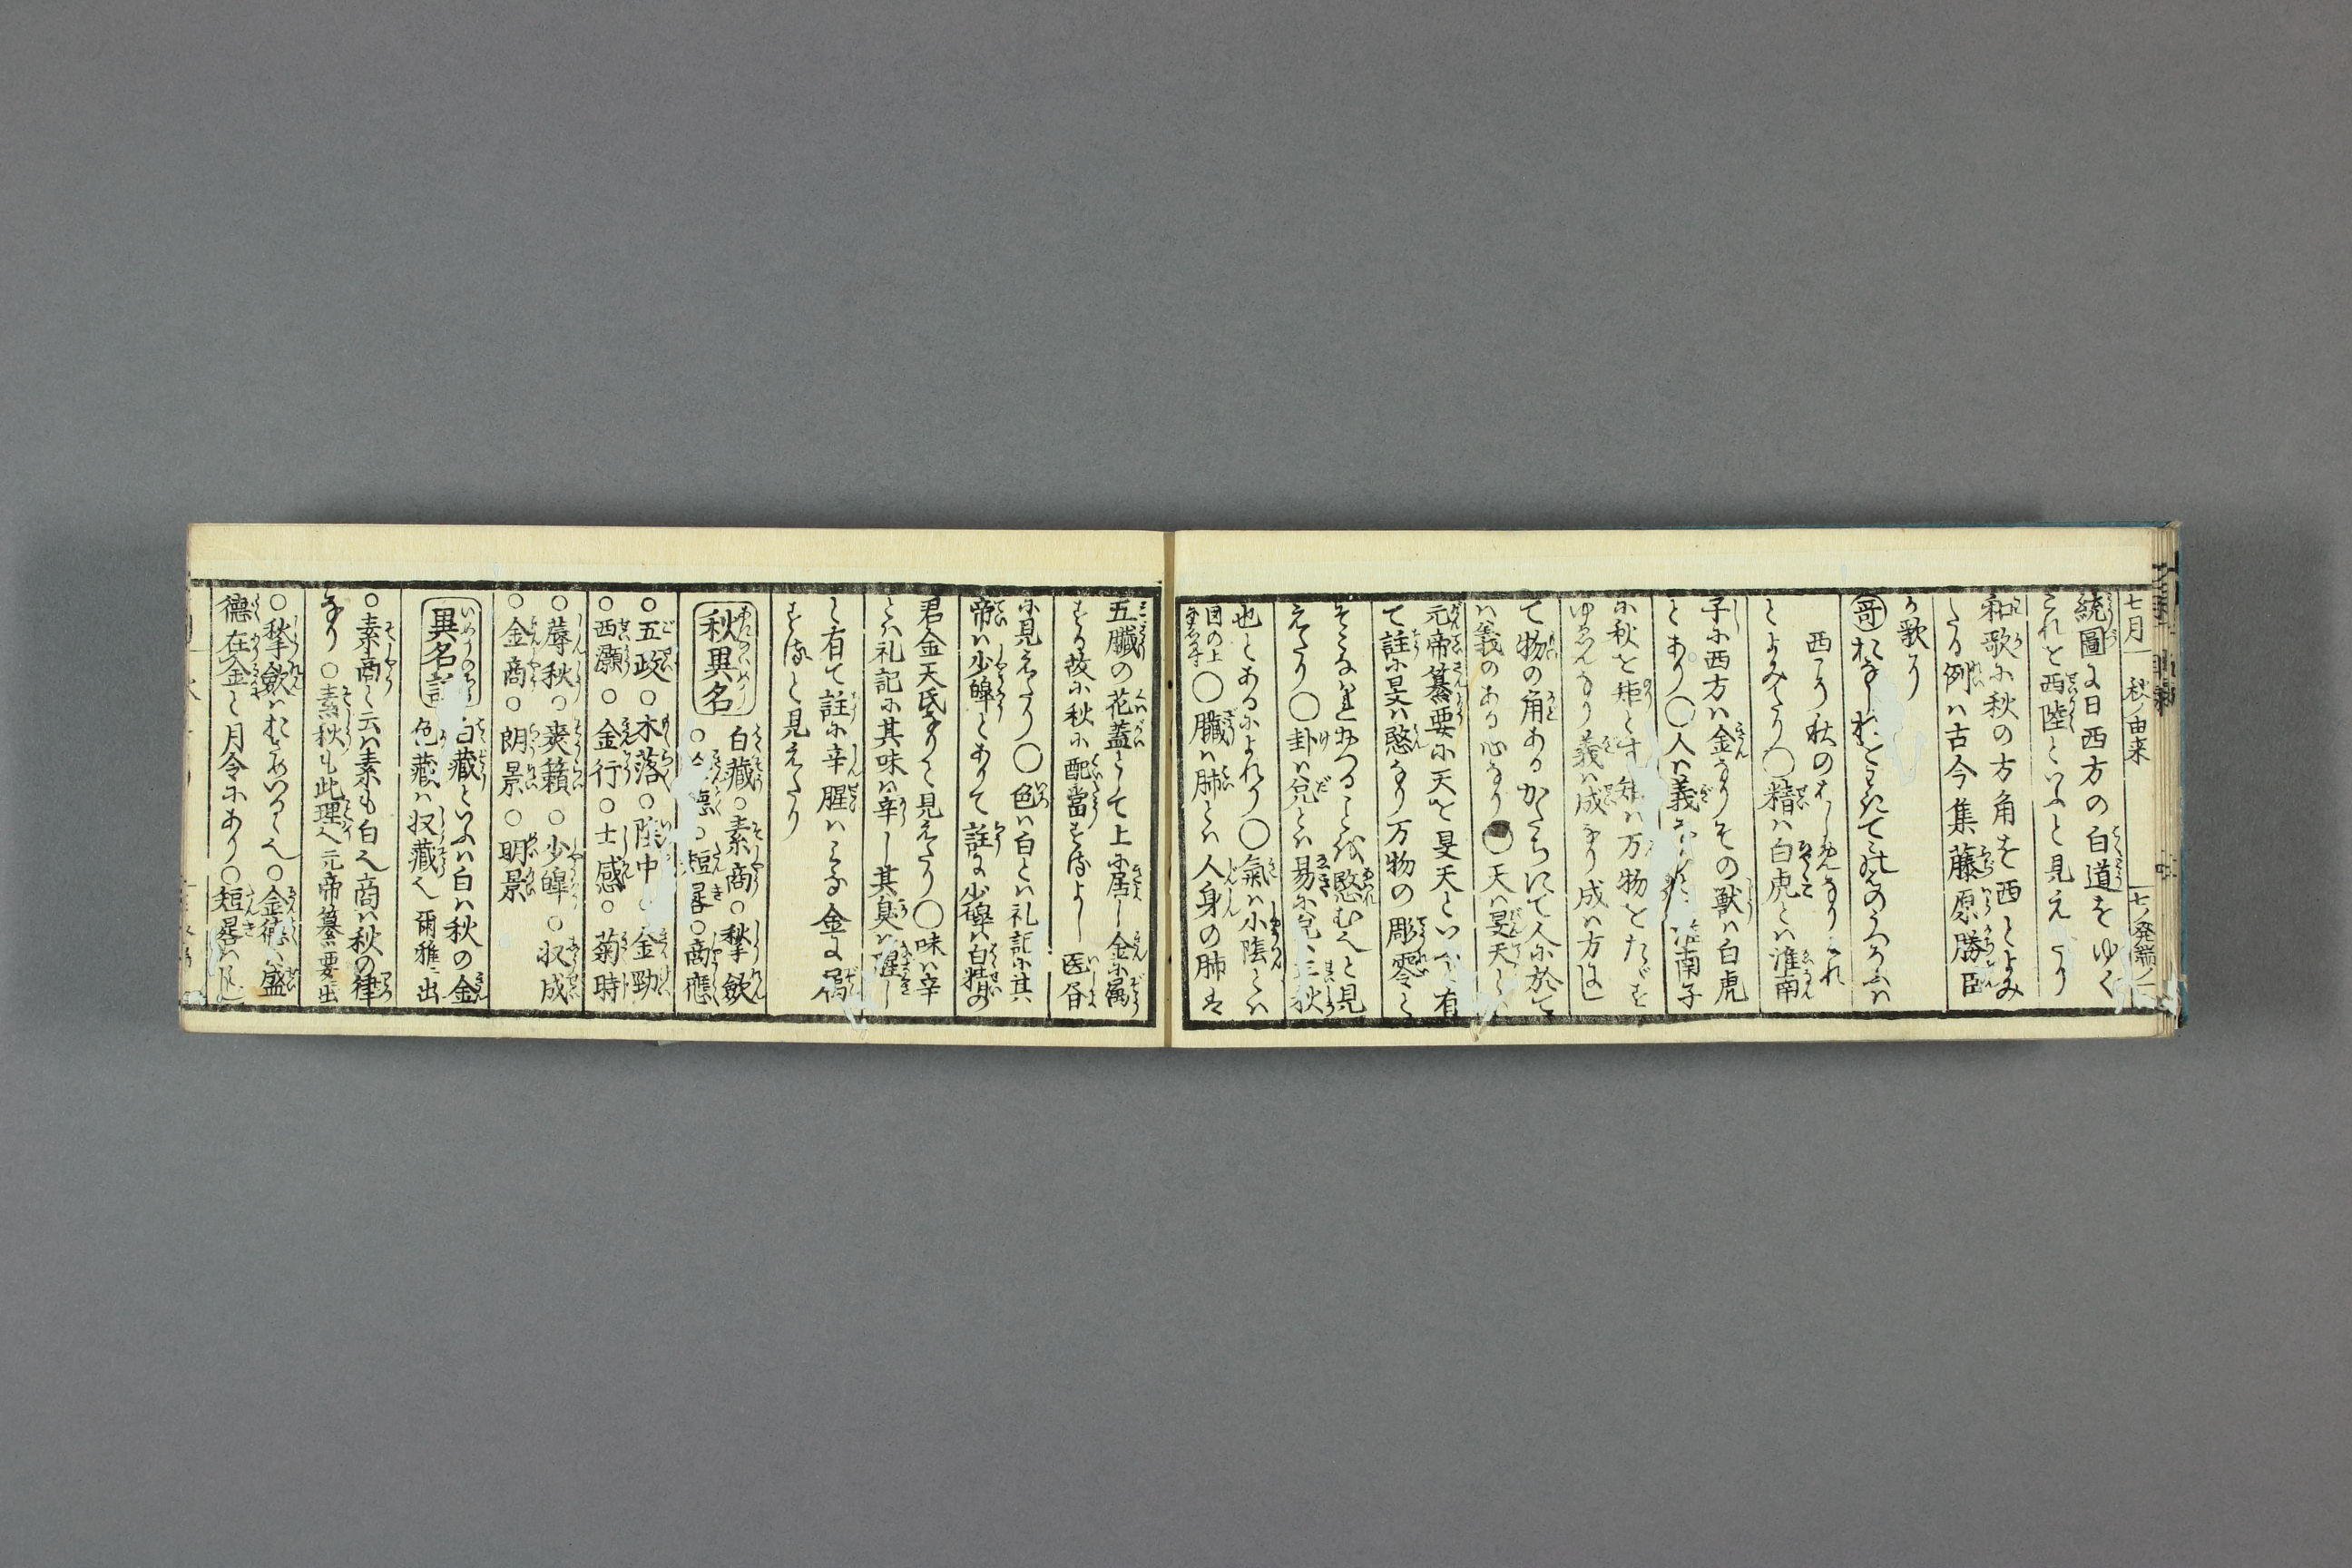 七月 秋ノ由来 七ノ発端ノ一
統圖に日西方の白道をゆく
これを西陸といふと見えたり
和歌に秋の方角を西とよみ
たる例は古今集藤原勝臣
か歌に
哥 おなしえをわきてこのはのうつろふハ
西こそ秋のはしめなりけれ
とよみたり〇精ハ白虎とハ淮南
子に西方ハ金なりその獣ハ白虎
とあり〇人ハ義
に秋を矩とす矩ハ万物をたゞす
ゆゑんなり義ハ成なり成ハ方に
て物の角あるかたちにて人に於て
ハ義のある心なり〇天ハ旻天と
元帝纂要に天を旻天といふと有
て註に旻ハ愍なり万物の彫零を
愍むと見
えたり〇卦ハ兌とハ易に兌ハ正秋
也とあるによれり〇氣ハ小陰とハ
〇臓ハ肺とハ人身の肺は
五臓の花蓋とて上に居し金に属
する故に秋に配當するよし医書
に見えたり〇色ハ白とハ礼記に其
帝ハ少皥とありて註に少皥ハ白精の
君金天氏なりと見えたり〇味ハ辛
とハ礼記に其味ハ辛し其臭ハ腥し
と有て註に辛腥ハみな金に属
すると見えたり
秋異名 白藏〇素商〇揫斂
〇金德〇短晷〇商應
〇五政〇木落〇陰中〇金勁
〇西灝〇金行〇士感〇菊時
〇蓐秋〇爽籟〇少皥〇収成
〇金商〇朗景〇明景
異名註 白藏といふハ白ハ秋の金
色藏ハ収藏也爾雅ニ出
〇素商と云ハ素も白也商ハ秋の律
なり〇素秋も此理也元帝纂要ニ出
〇揫斂ハ 〇金德ハ盛
德在金と月令にあり〇短晷ハ